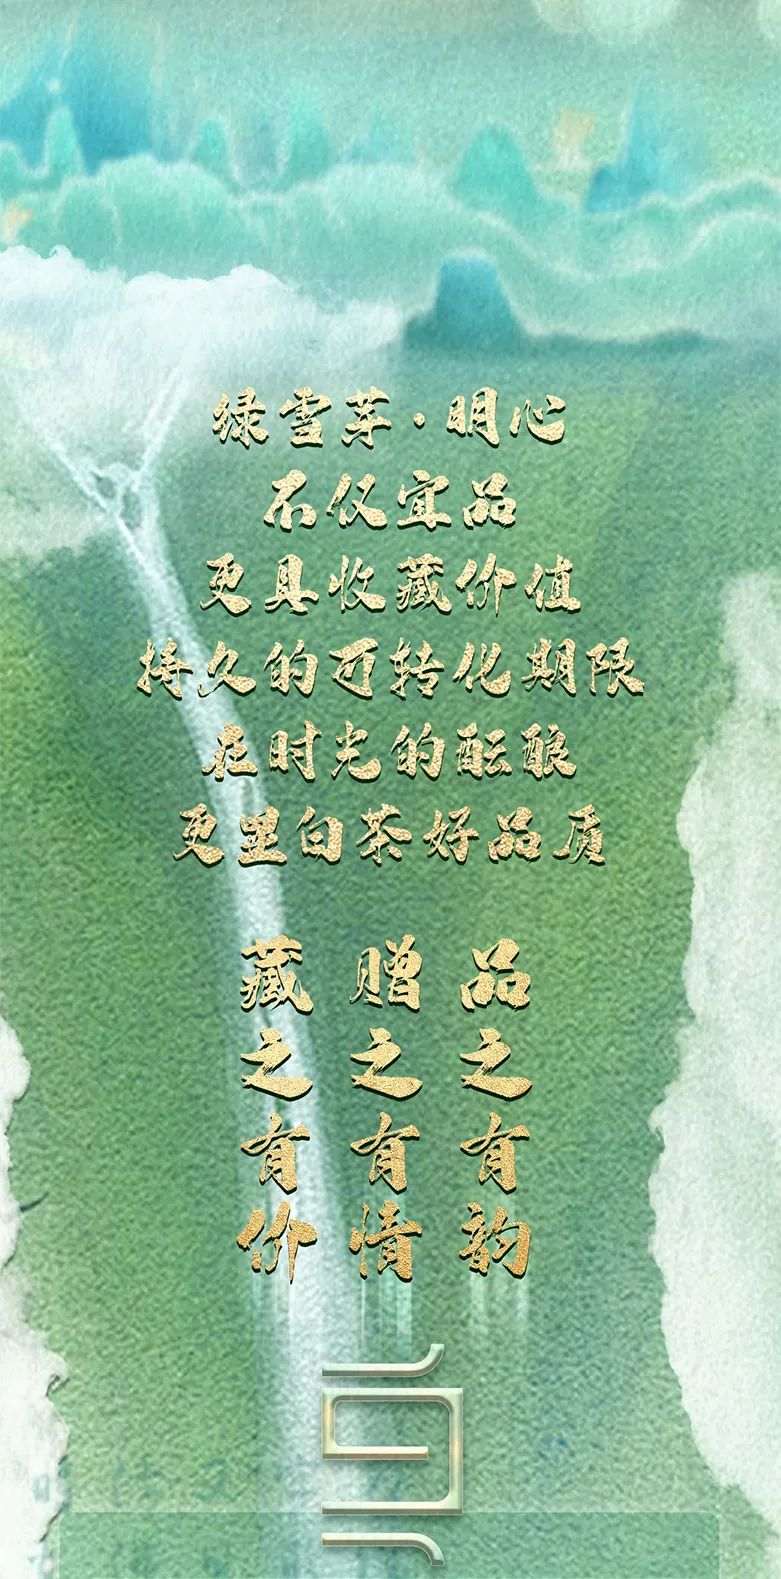 绿雪芽·明心
不仅宜品
更具收藏价值
持久的可转化期限
在时光的酝酿
更显白茶好品质
品之有韵
赠之有情
藏之有价